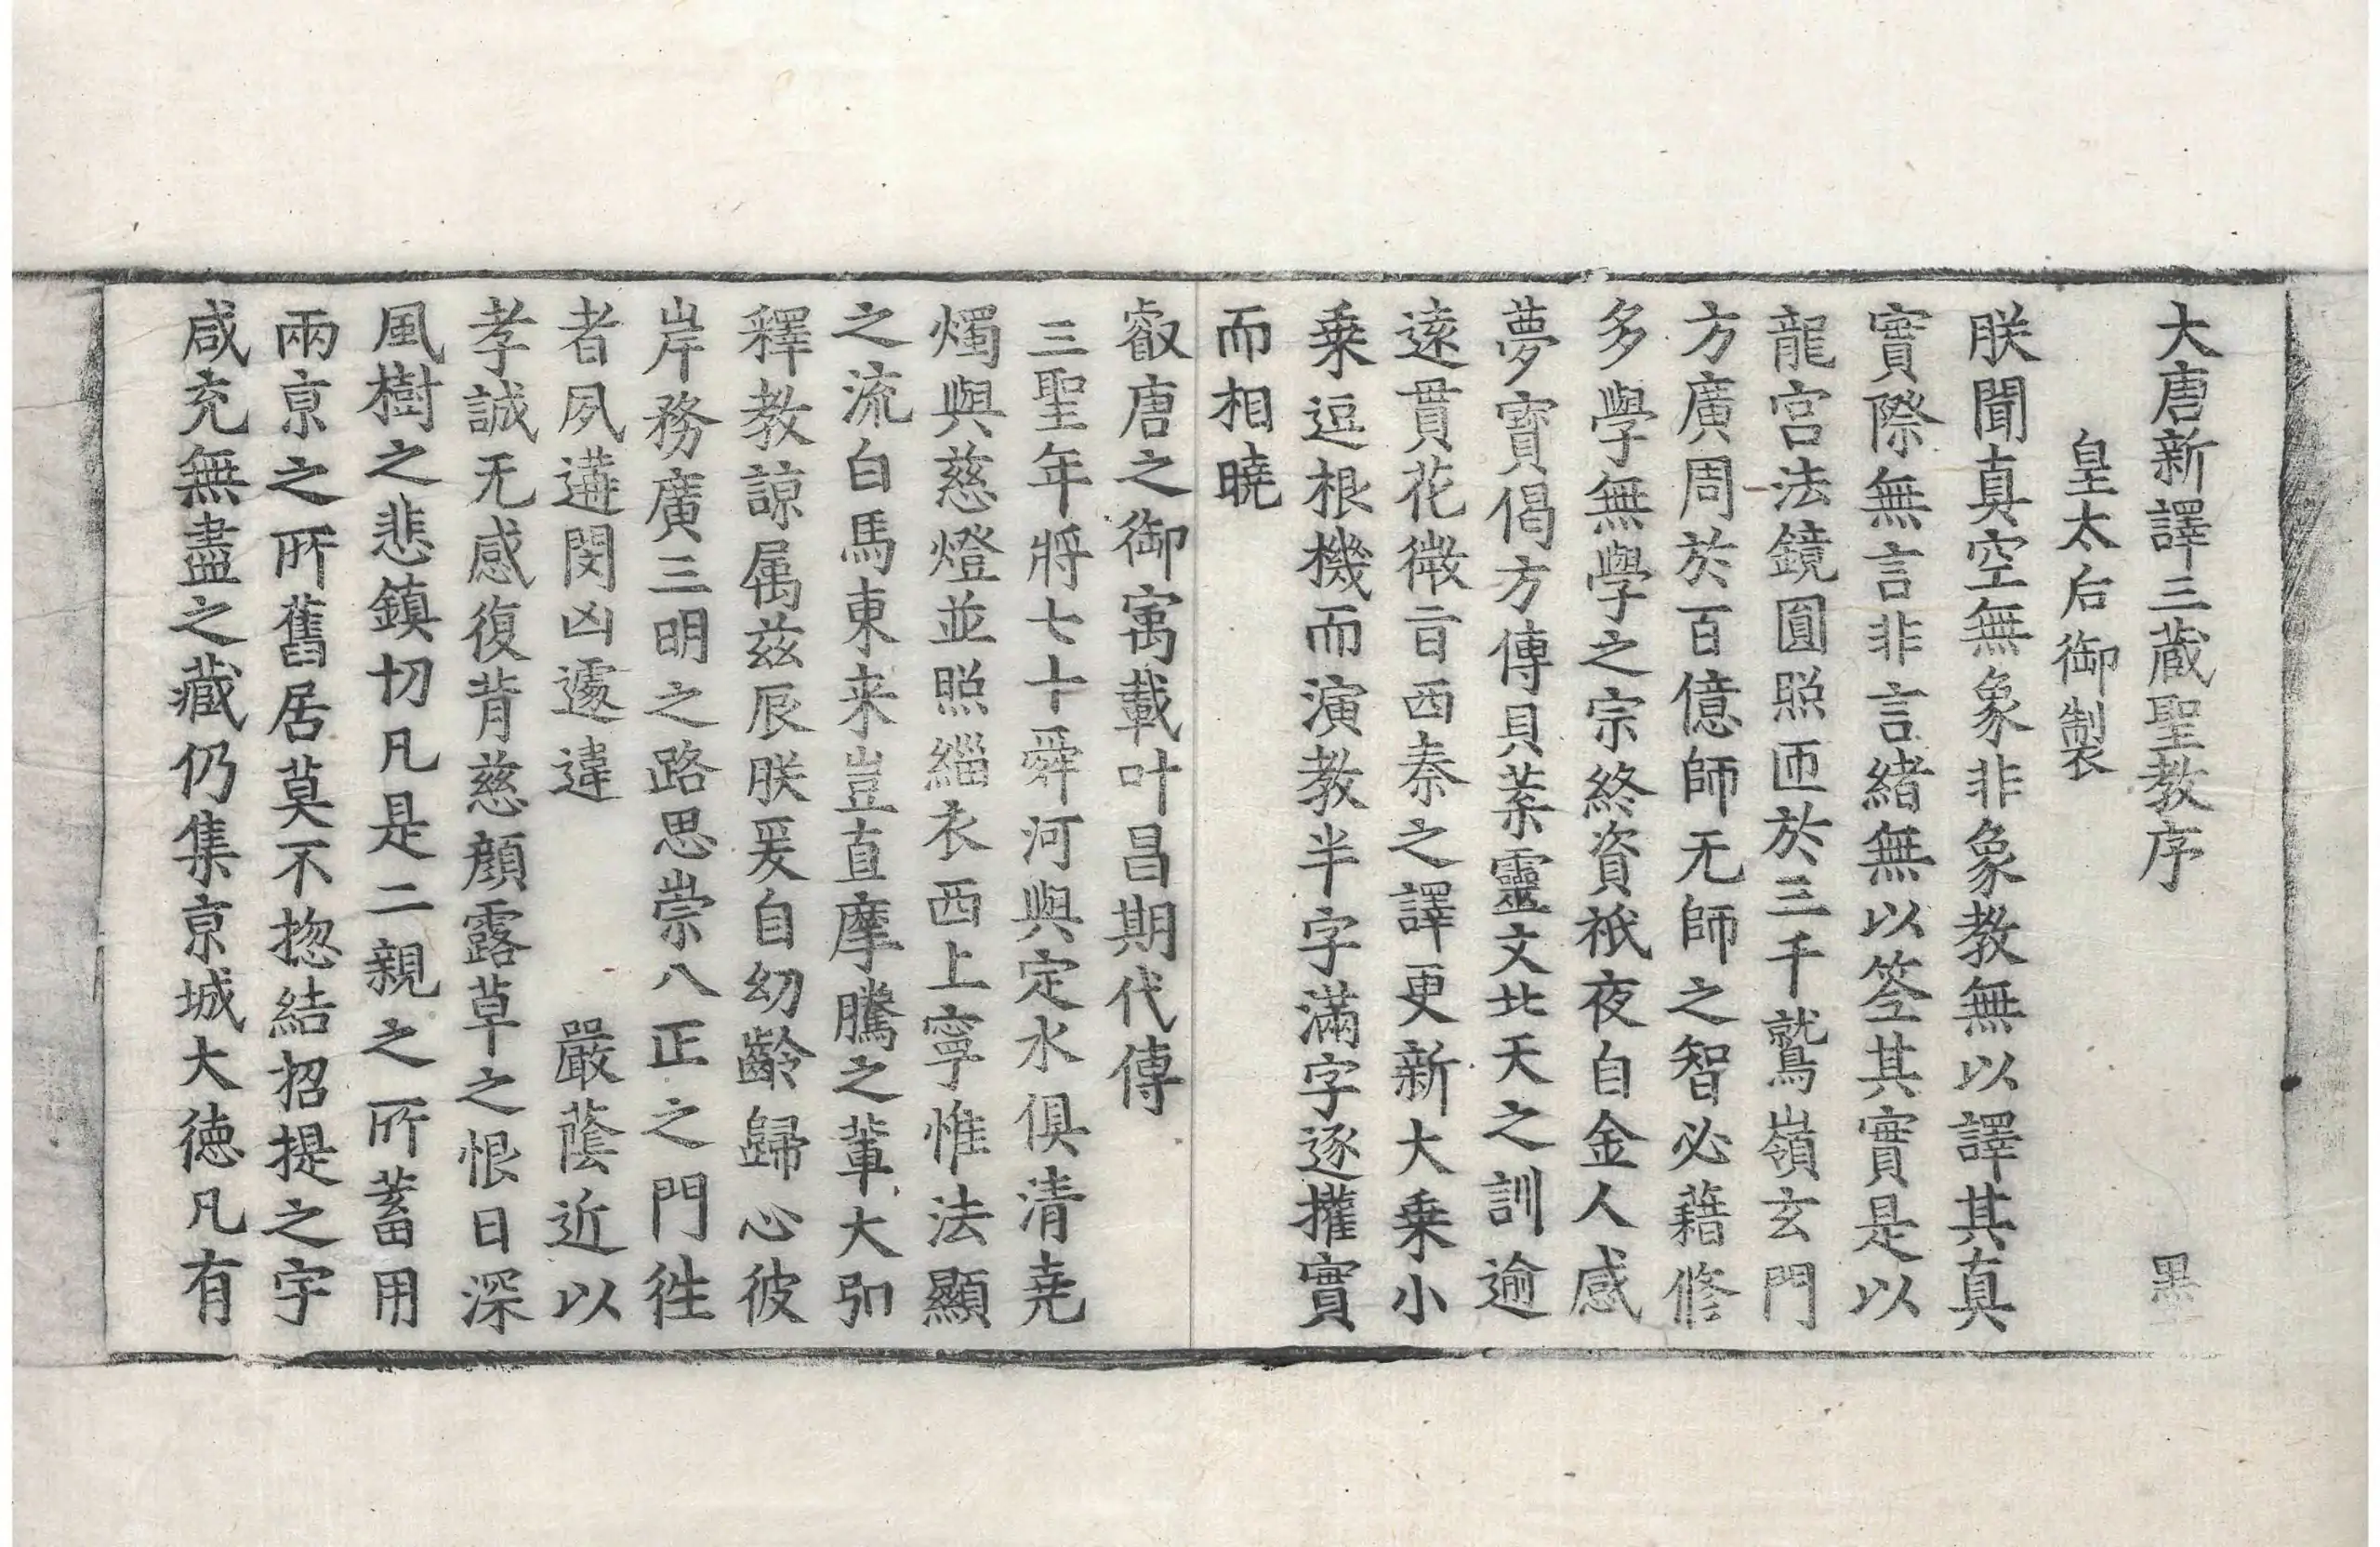 大唐新譯三蔵聖教序 墨
皇太后御製
朕聞真空無象非象教無以譯其真
實際無言非言緒無以筌其實是以
龍宮法鏡圓照匝於三千鷲嶺玄門
方廣周於百億師无師之智必藉修
多學無學之宗終資祇夜自金人感
夢寳偈方傳貝菜靈文北天之訓逾
遠貫花微旨西秦之譯更新大乗小
乗逗根機而演教半字滿字逐攉實
而相曉
叡唐之御寓載叶昌期代傳
三聖年將七十舜河與定水俱清堯
燭與慈燈並照緇衣西上寧惟法顯
之流白馬東来豈直摩騰之輩大弘
釋教諒属兹辰朕爰自幼齡歸心彼
岸務廣三明之路思崇八正之門徃
者夙遘閔凶遽違 嚴蔭近以
孝誠无感復背慈顔露草之恨日深
風樹之悲鎮切凡是二親之所蓄用
兩京之所舊居莫不捴結招提之宇
咸充無盡之藏仍集京城大徳凡有